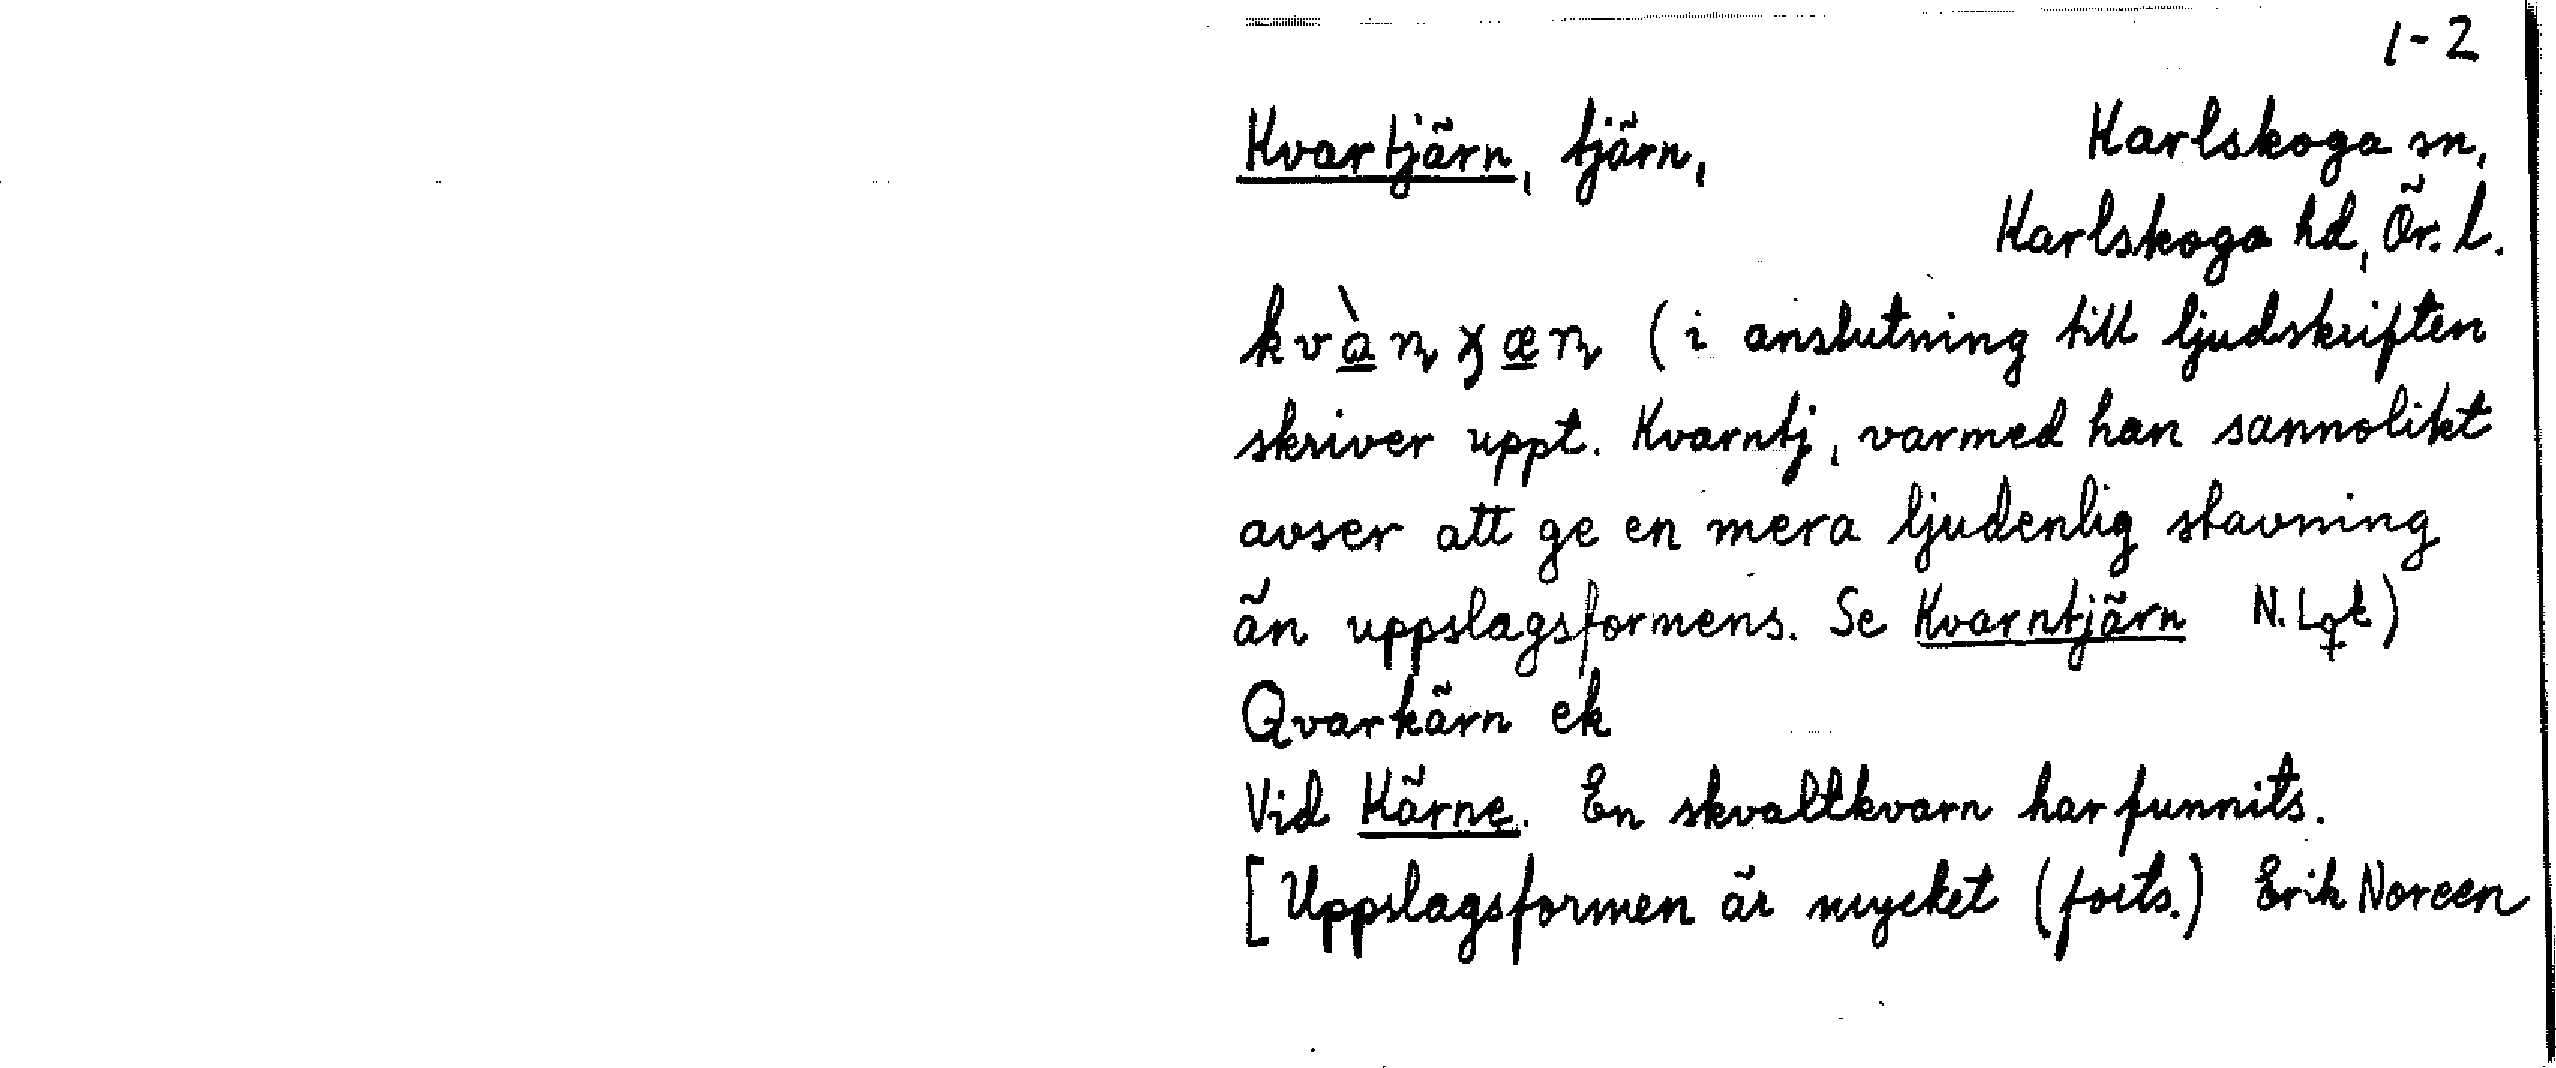 1-2
Kvartjärn, tjärn, Karlskoga sn,
Karlskoga hd, Ör. l.
(i anslutning till ljudskriften
skriver uppt. Kvarntj, varmed han sannolikt
avser att ge en mera ljudenlig stavning
än uppslagsformens. Se Kvarntjärn N. Lqt)
Qvarkärn ek
Vid Kärne. En skvaltkvarn har funnits.
[Uppslagsformen är mycket (forts.) Erik Noreen